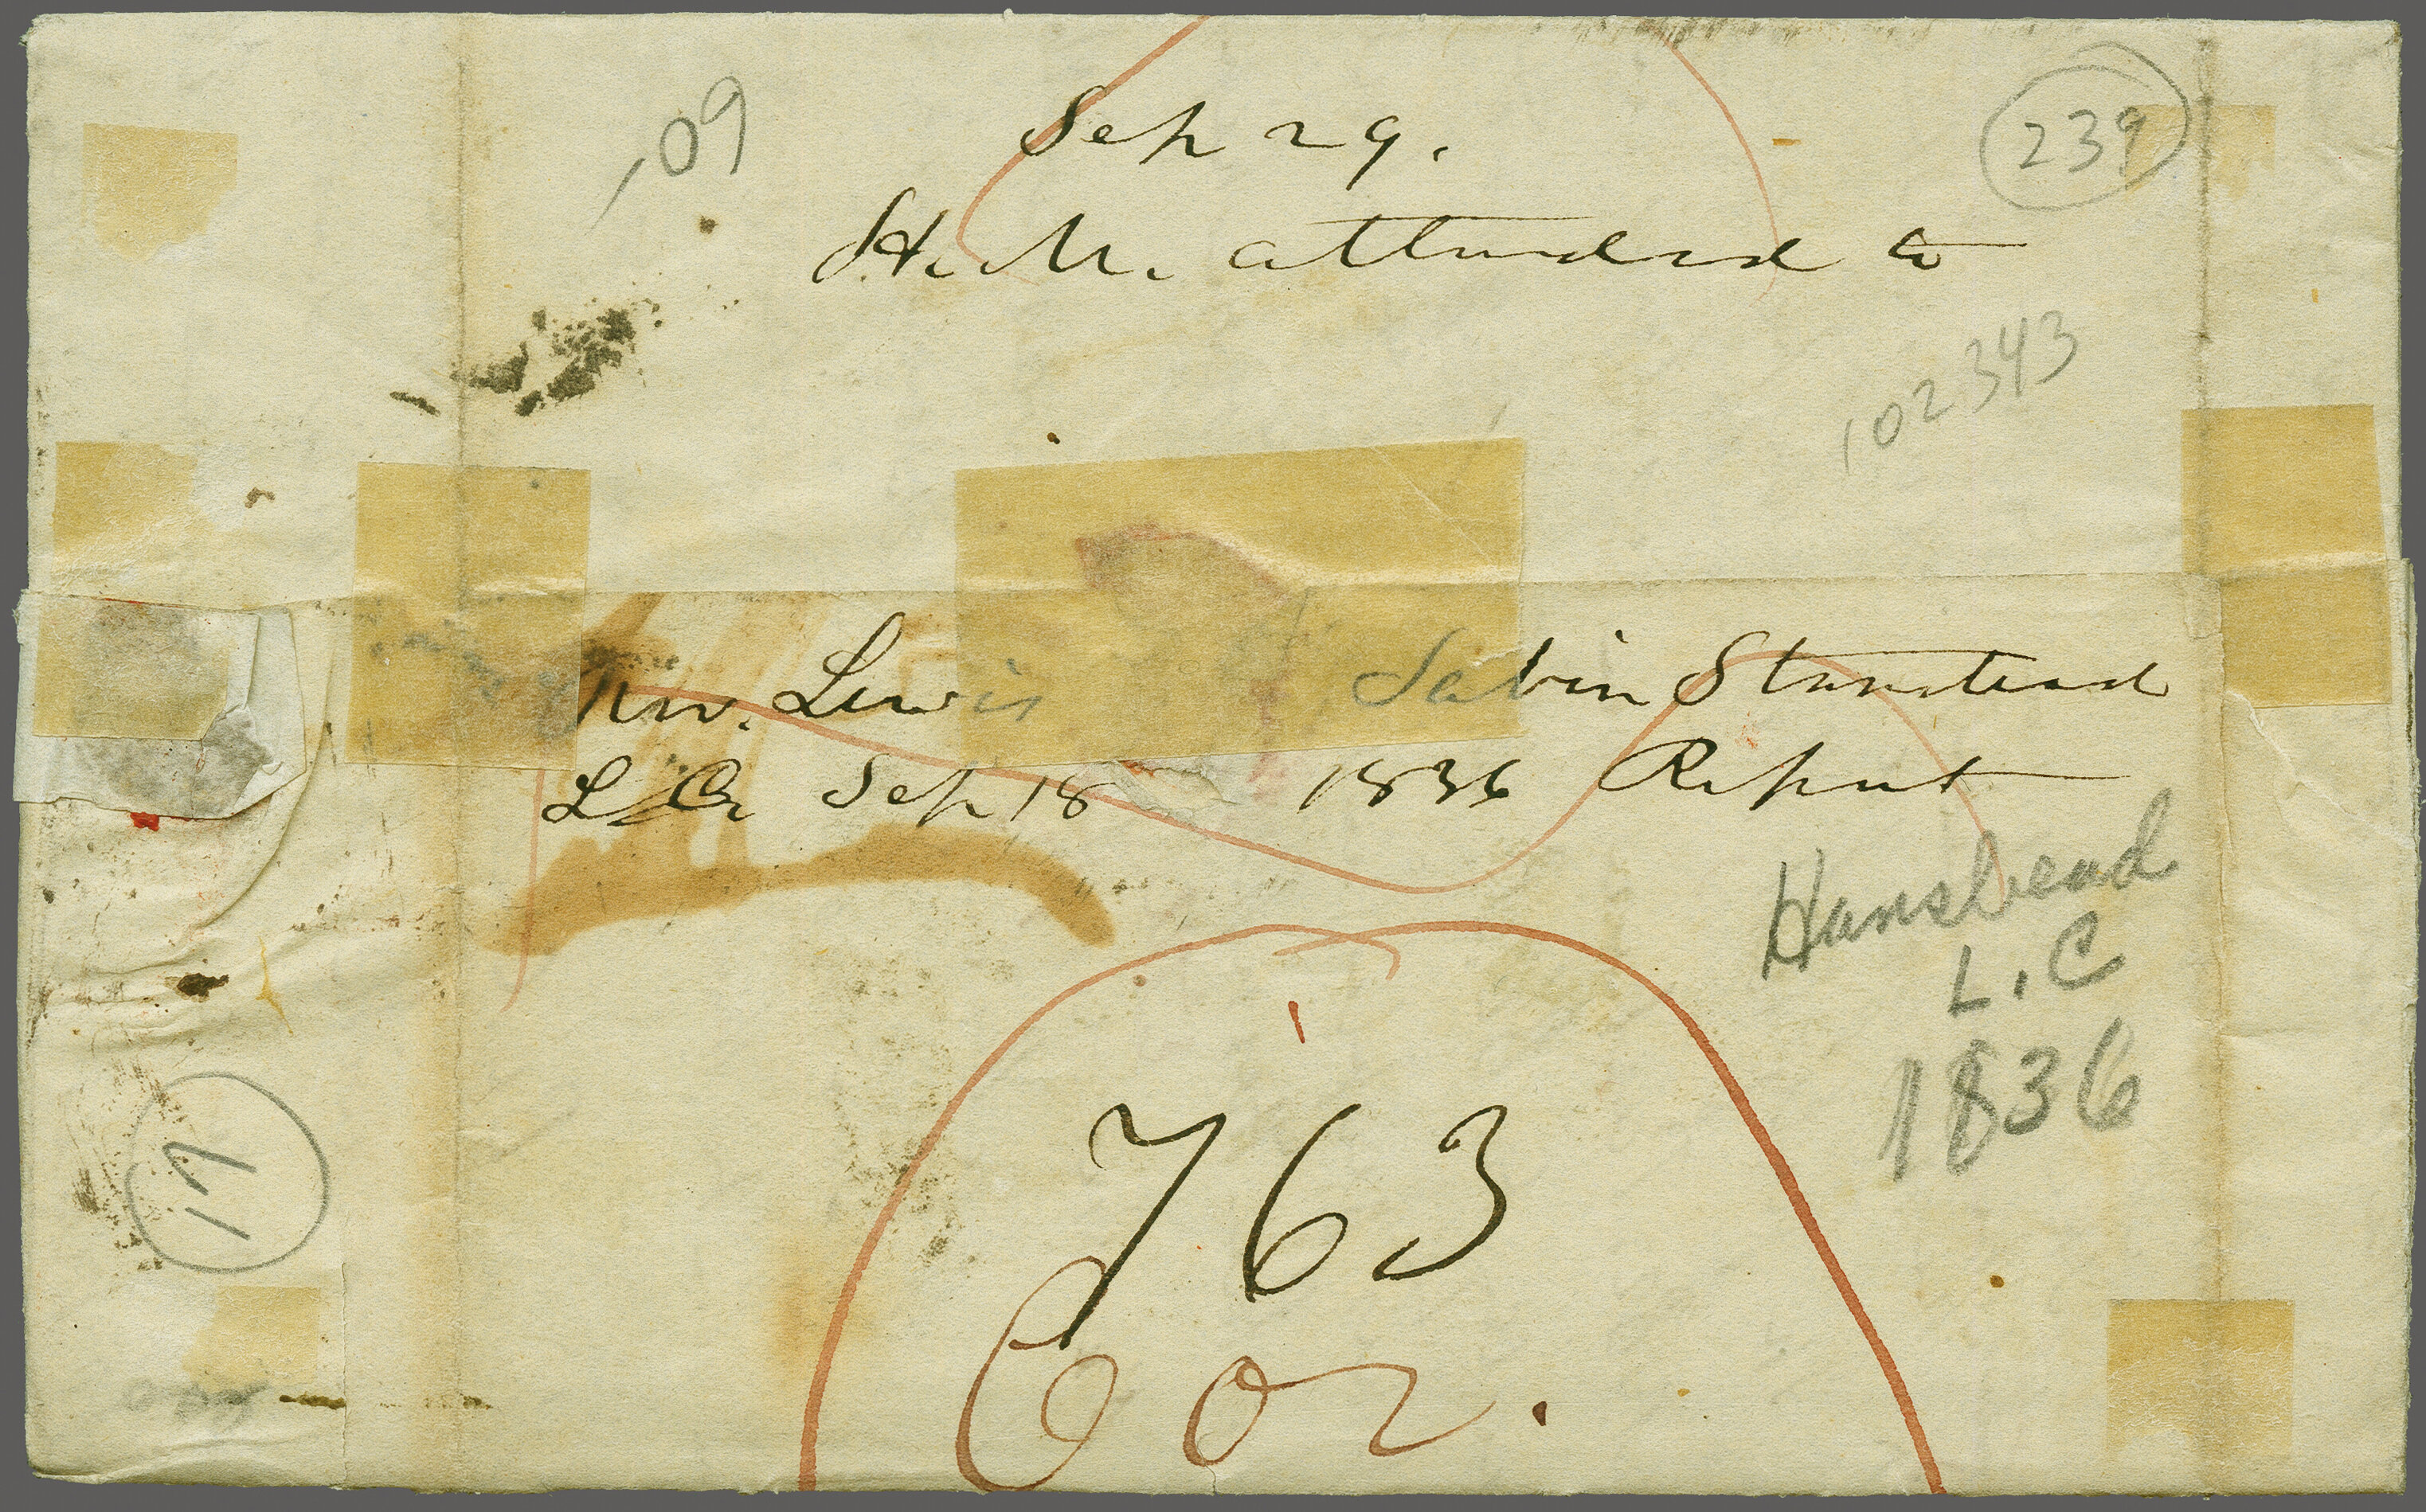 -09
Sep 29.
239
H. M. attended to
102343
Rev. Lewis Sabin Stanstead
L. C. Sep 18 1836 Report
Hansbead
L.C
1836
17
763
602.